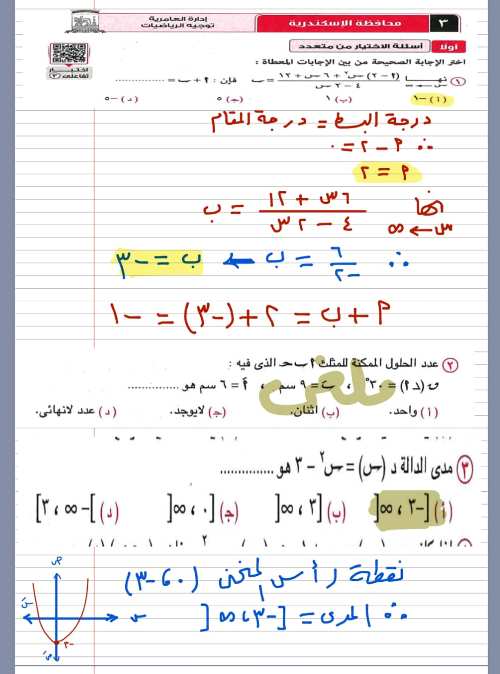 ٣
محافظة الإسكندرية
إدارة العامرية
توجيه الرياضيات
أولا أسئلة الاختيار من متعدد
اختبار تفاعلى
اختر الإجابة الصحيحة من بين الإجابات المعطاة :
١ نهــا س←∞ (٢-٢)س٢ + ٦س + ١٢ / ٤ - ٢س = ب فإن : ٢ + ب = ..............
(أ) -١ (ب) ١ (ج) ٥ (د) -٥
درجة البسط = درجة المقام
∴ ٢ - ٢ = ٠
٢ = ٢
نها س←∞ ٦س + ١٢ / ٤ - ٢س = ب
∴ ٦ / -٢ = ب ← ب = -٣
٢ + ب = ٢ + (-٣) = -١
٢ عدد الحلول الممكنة للمثلث ٢ ب حـ الذى فيه :
ملغى
ق (د٢) = ٣٠° ، بَ = ٩ سم ، ٢َ = ٦ سم هو ..............
(أ) واحد. (ب) اثنان. (ج) لايوجد. (د) عدد لانهائى.
٣ مدى الدالة د (س) = س٢ - ٣ هو ..............
(أ) [-٣ ، ∞[ (ب) [٣ ، ∞[ (ج) [٠ ، ∞[ (د) ]-∞ ، ٣]
نقطة رأس المنحنى (٠ ، -٣)
∴ المدى = [-٣ ، ∞[
ص
س
سَ
-٣
صَ